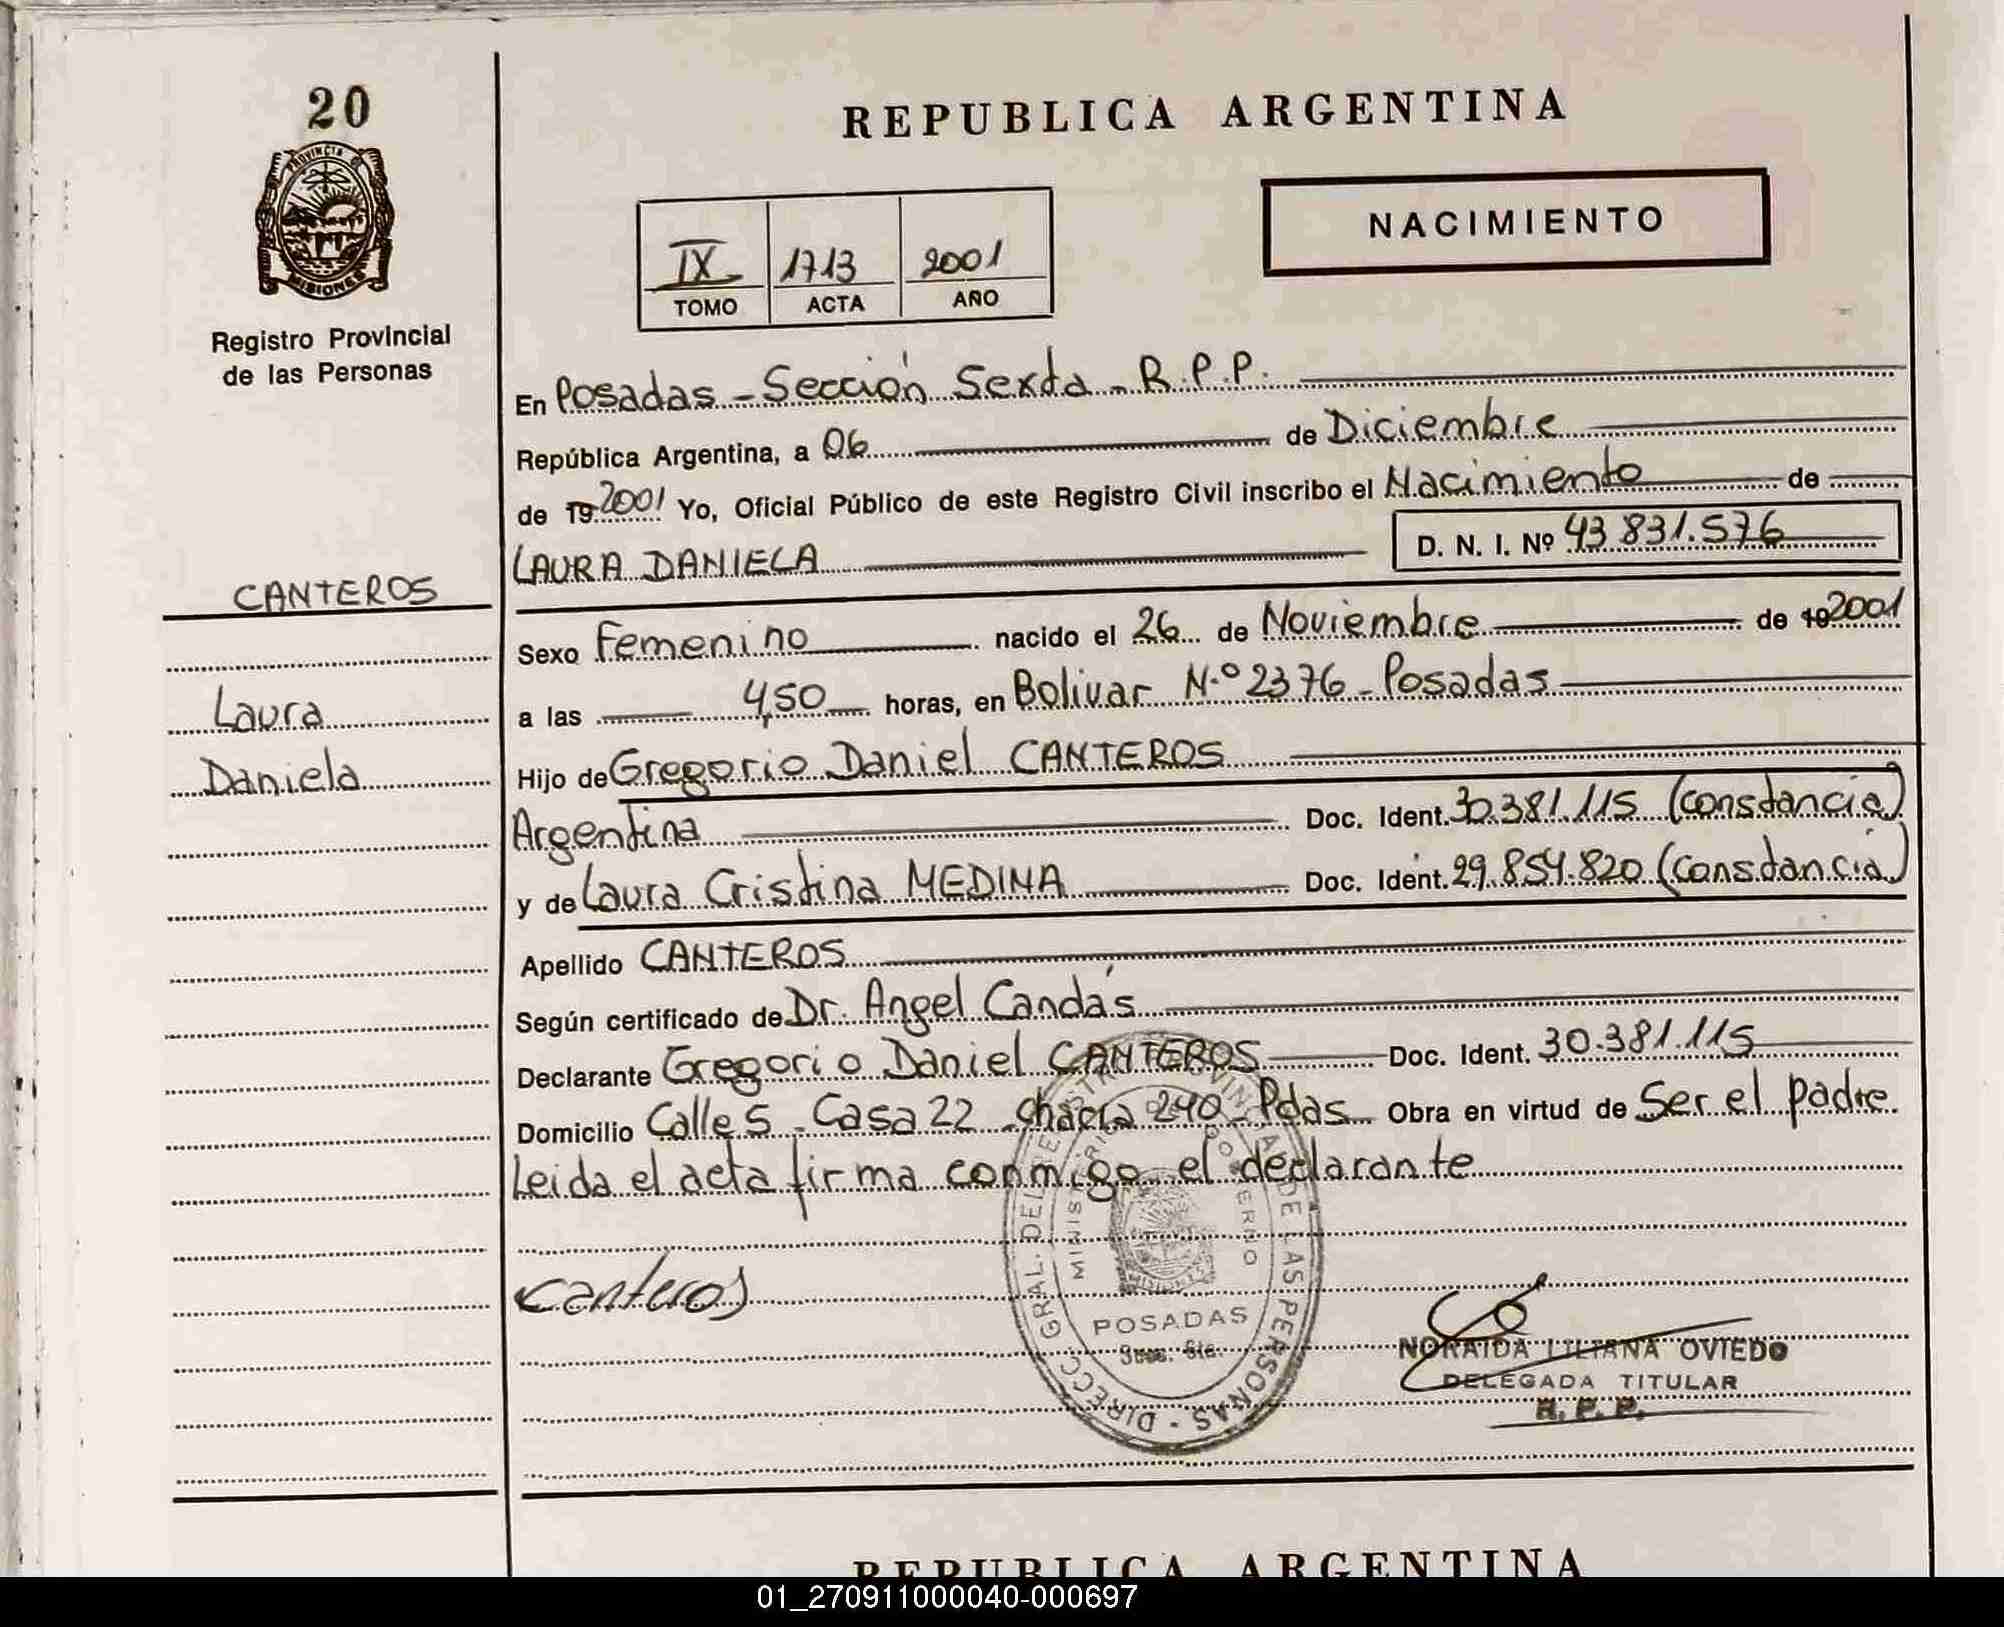 20
PROVINCIA DE
MISIONES
Registro Provincial
de las Personas
CANTEROS
Laura
Daniela
REPUBLICA ARGENTINA
NACIMIENTO
IX 1713 2001
TOMO ACTA AÑO
En Posadas - Sección Sexta - R.P.P.
República Argentina, a 06 de Diciembre
de 19 2001 Yo, Oficial Público de este Registro Civil inscribo el Nacimiento de
LAURA DANIELA D. N. I. Nº 43 831.576
Sexo Femenino nacido el 26 de Noviembre de 19 2001
a las 4,50 horas, en Bolivar N.º 2376 - Posadas
Hijo de Gregorio Daniel CANTEROS
Argentina Doc. Ident. 30.381.115 (constancia)
y de Laura Cristina MEDINA Doc. Ident. 29.854.820 (Constancia)
Apellido CANTEROS
Según certificado de Dr. Angel Candás
Declarante Gregorio Daniel CANTEROS Doc. Ident. 30.381.115
Domicilio Calle 5 - Casa 22 - chacra 240 - Pdas Obra en virtud de Ser el padre
Leida el acta firma conmigo el declarante
Canteros
DIRECC. GRAL. DEL REGISTRO PROVINCIAL DE LAS PERSONAS -
MINISTERIO DE GOBIERNO
POSADAS
Secc. 6ta.
NORAIDA LILIANA OVIEDO
DELEGADA TITULAR
R. P. P.
REPUBLICA ARGENTINA
01_270911000040-000697